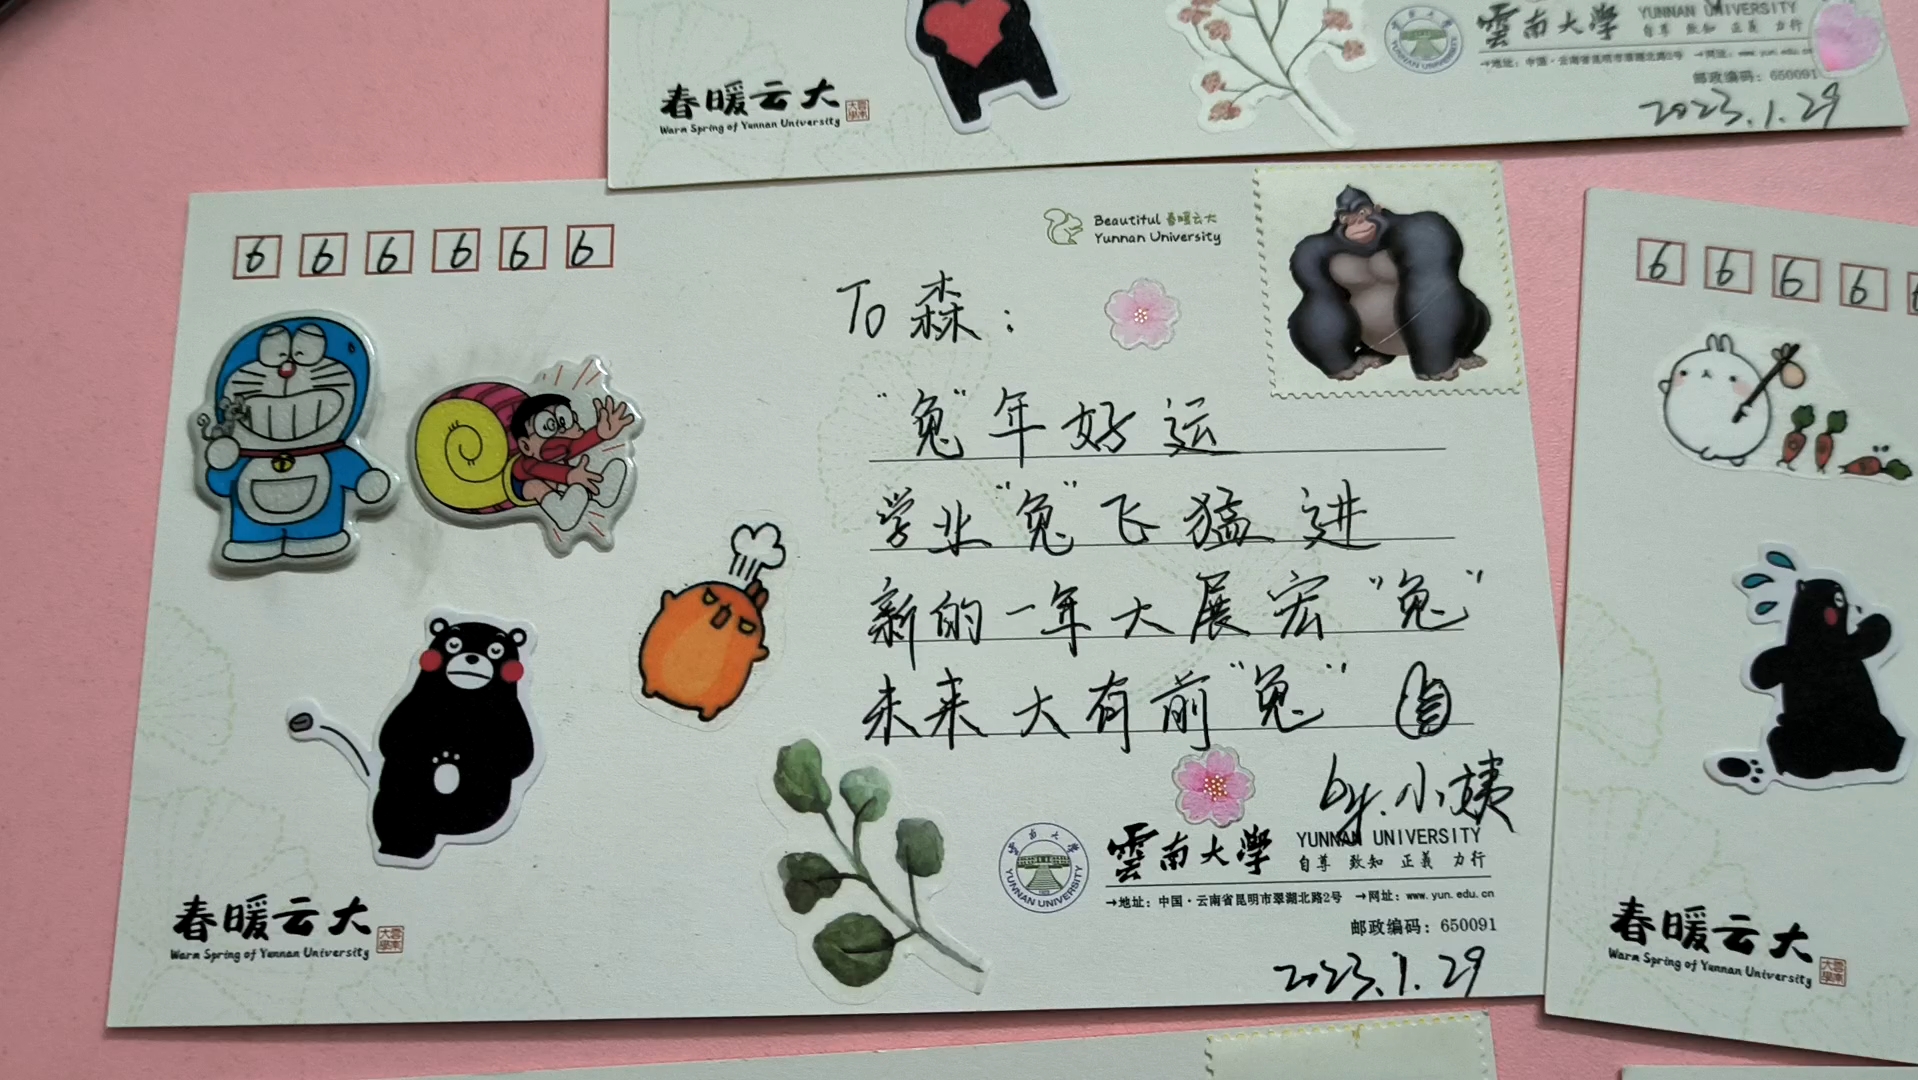 春暖云大
Warm Spring of Yunnan University
雲南大學
YUNNAN UNIVERSITY
自尊 致知 正義 力行
→地址：中国·云南省昆明市翠湖北路2号 →网址：www.yun.edu.cn
邮政编码：650091
2023.1.29
6 6 6 6 6 6
Beautiful 春暖云大
Yunnan University
To 森：
"兔"年好运
学业"兔"飞猛进
新的一年大展宏"兔"
未来大有前"兔"
by.小姨
雲南大學
YUNNAN UNIVERSITY
自尊 致知 正義 力行
→地址：中国·云南省昆明市翠湖北路2号 →网址：www.yun.edu.cn
邮政编码：650091
2023.1.29
YUNNAN UNIVERSITY
春暖云大
Warm Spring of Yunnan University
6 6 6 6
春暖云大
Warm Spring of Yunnan University